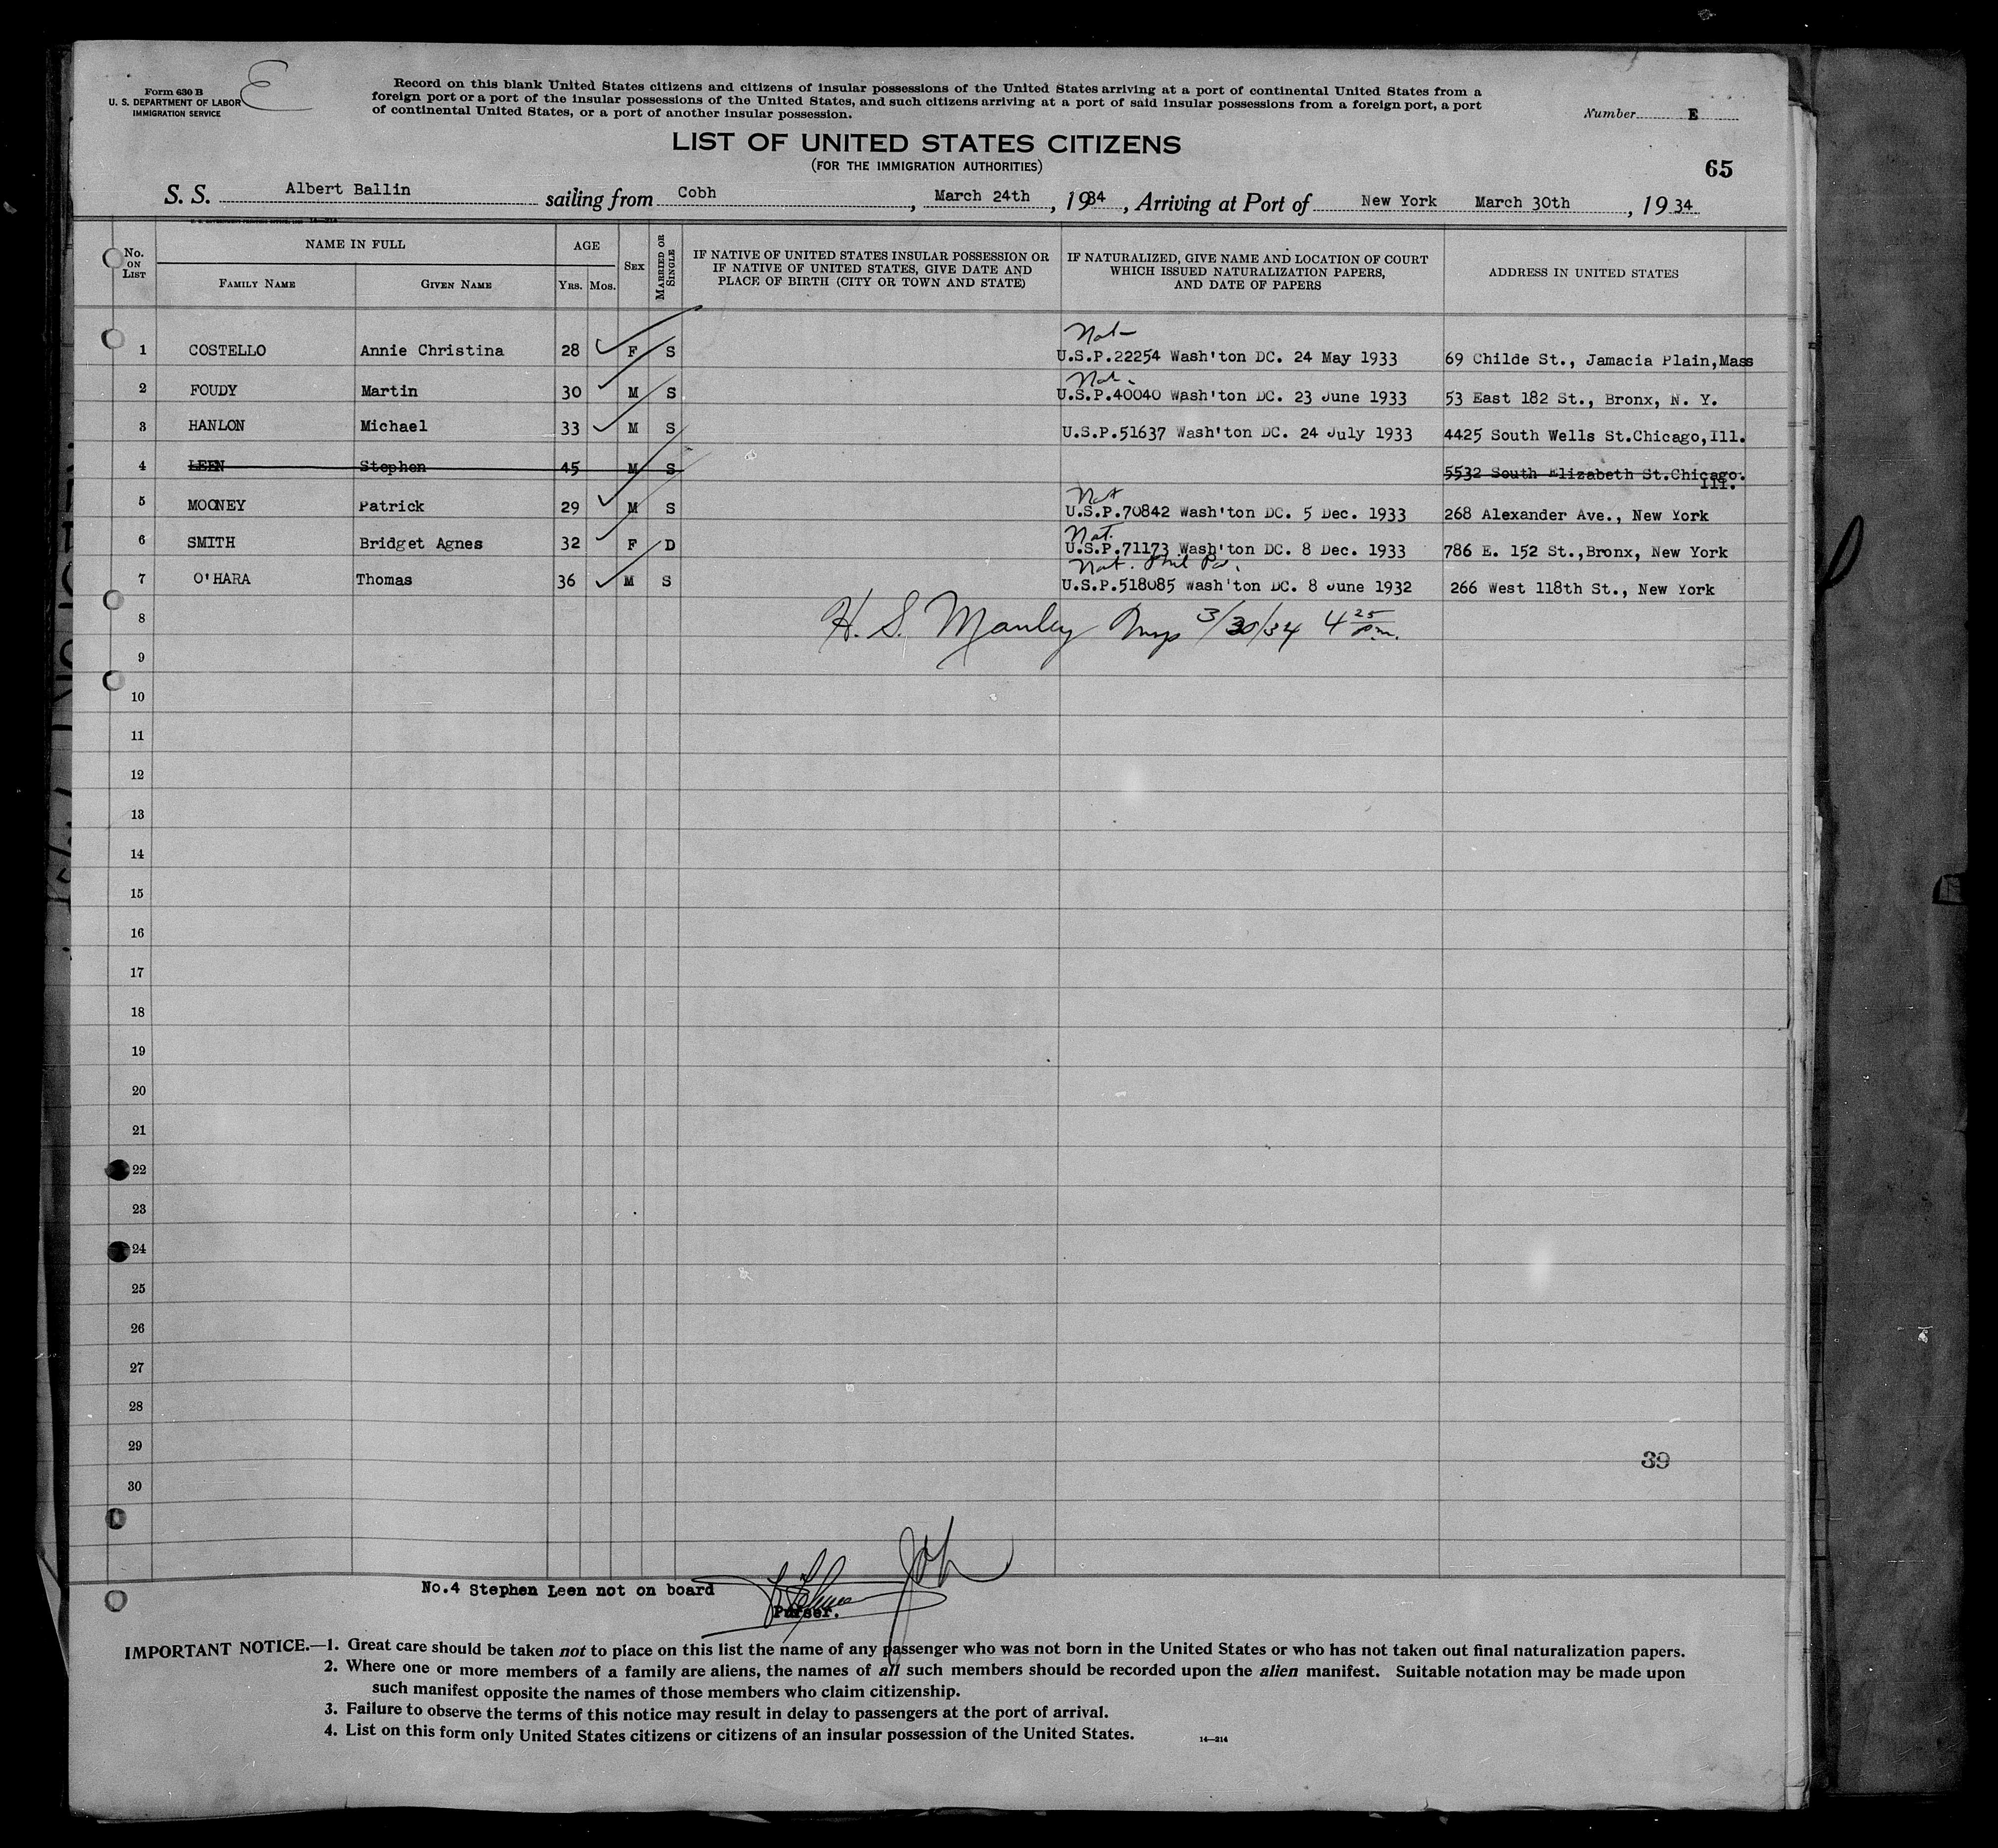 Form 630 B
U. S. DEPARTMENT OF LABOR
IMMIGRATION SERVICE
E
Record on this blank United States citizens and citizens of insular possessions of the United States arriving at a port of continental United States from a
foreign port or a port of the insular possessions of the United States, and such citizens arriving at a port of said insular possessions from a foreign port, a port
of continental United States, or a port of another insular possession.
Number E
LIST OF UNITED STATES CITIZENS
(FOR THE IMMIGRATION AUTHORITIES)
65
S. S. Albert Ballin sailing from Cobh, March 24th, 1934, Arriving at Port of New York March 30th, 1934
No. ON LIST
NAME IN FULL
FAMILY NAME
GIVEN NAME
AGE
YRS. MOS.
SEX
MARRIED OR SINGLE
IF NATIVE OF UNITED STATES INSULAR POSSESSION OR
IF NATIVE OF UNITED STATES, GIVE DATE AND
PLACE OF BIRTH (CITY OR TOWN AND STATE)
IF NATURALIZED, GIVE NAME AND LOCATION OF COURT
WHICH ISSUED NATURALIZATION PAPERS,
AND DATE OF PAPERS
ADDRESS IN UNITED STATES
Nat
1 COSTELLO Annie Christina 28 F S U.S.P.22254 Wash'ton DC. 24 May 1933 69 Childe St., Jamacia Plain,Mass
Nat.
2 FOUDY Martin 30 M S U.S.P.40040 Wash'ton DC. 23 June 1933 53 East 182 St., Bronx, N. Y.
3 HANLON Michael 33 M S U.S.P.51637 Wash'ton DC. 24 July 1933 4425 South Wells St.Chicago,Ill.
4 LEEN Stephen 45 M S 5532 South Elizabeth St.Chicago.
Ill.
Nat
5 MOONEY Patrick 29 M S U.S.P.70842 Wash'ton DC. 5 Dec. 1933 268 Alexander Ave., New York
Nat.
6 SMITH Bridget Agnes 32 F D U.S.P.71173 Wash'ton DC. 8 Dec. 1933 786 E. 152 St.,Bronx, New York
Nat. Phil Pa.
7 O'HARA Thomas 36 M S U.S.P.518085 Wash'ton DC. 8 June 1932 266 West 118th St., New York
8 H. S. Manley Insp 3/30/34 4 25 p.m.
9
10
11
12
13
14
15
16
17
18
19
20
21
22
23
24
25
26
27
28
29
39
30
No.4 Stephen Leen not on board
Purser.
IMPORTANT NOTICE.—1. Great care should be taken not to place on this list the name of any passenger who was not born in the United States or who has not taken out final naturalization papers.
2. Where one or more members of a family are aliens, the names of all such members should be recorded upon the alien manifest. Suitable notation may be made upon
such manifest opposite the names of those members who claim citizenship.
3. Failure to observe the terms of this notice may result in delay to passengers at the port of arrival.
4. List on this form only United States citizens or citizens of an insular possession of the United States.
14—214